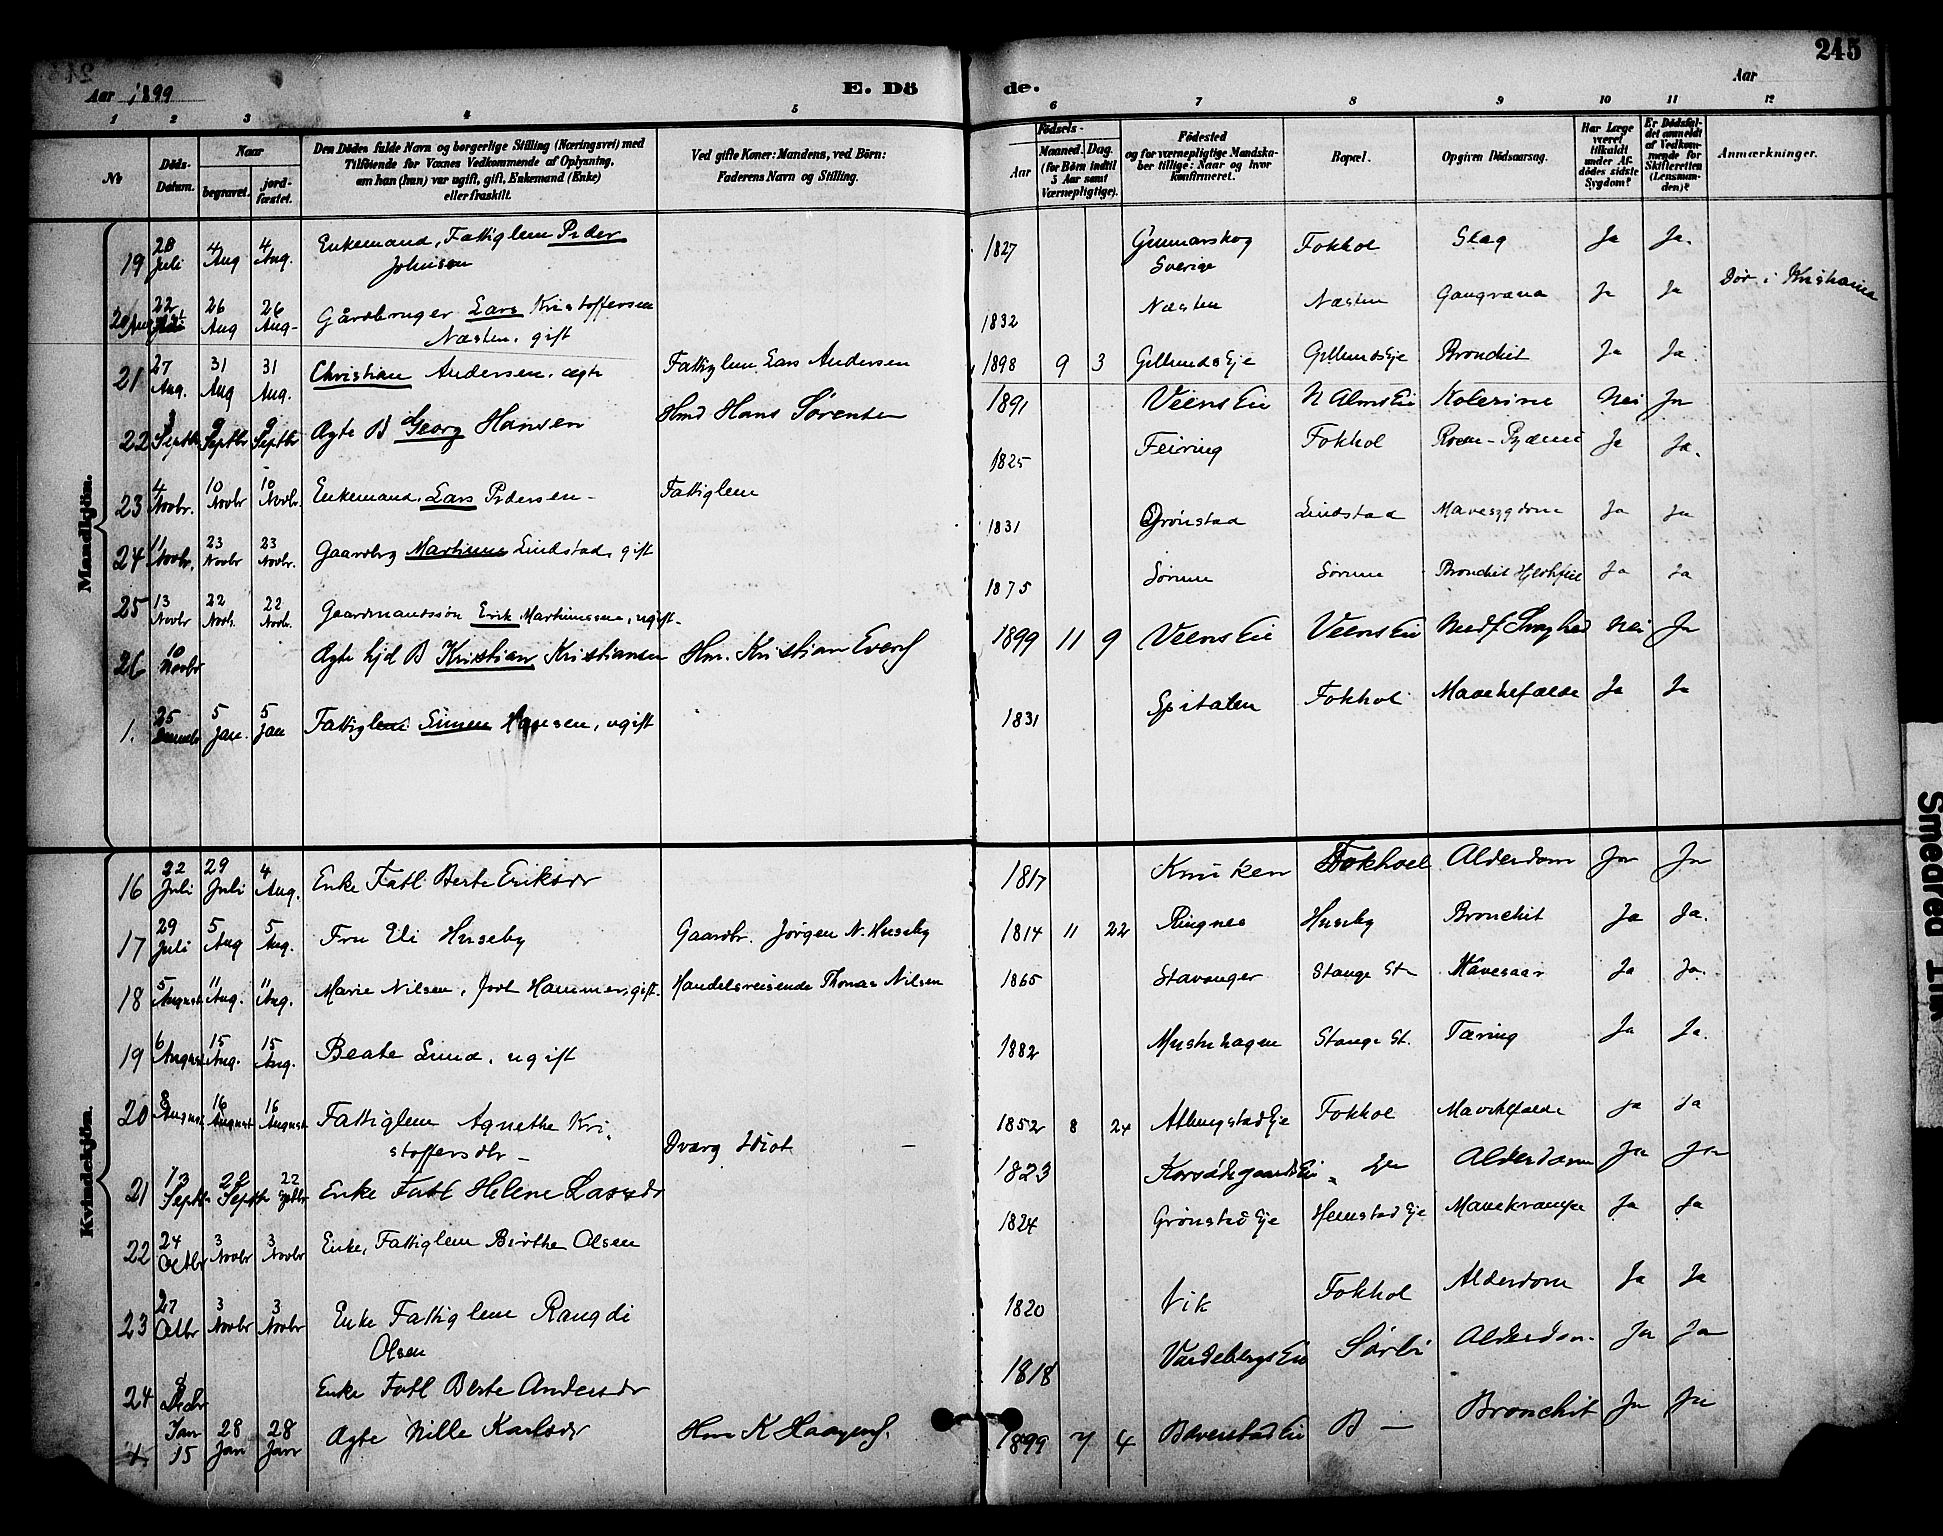 245
Aar 1899
E. Dö
de.
Aar
1 2 3 4 5 6 7 8 9 10 11 12
No
Döds-Datum.
Naar
begravet.
jord-fæstet.
Den Dödes fulde Navn og borgerlige Stilling (Næringsvei) med
Tilföiende for Voxnes Vedkommende af Oplysning,
om han (hun) var ugift, gift, Enkemand (Enke)
eller fraskilt.
Ved gifte Koner: Mandens, ved Börn:
Faderens Navn og Stilling.
Födsels-
Aar
Maaned. Dag.
(for Börn indtil
5 Aar samt
Værnepligtige).
Födested
og for værnepligtige Mandska-
ber tillige: Naar og hvor
konfirmeret.
Bopæl.
Opgiven Dödsaarsag.
Har Læge
været
tilkaldt
under Af-
dödes sidste
Sygdom?
Er Dödsfal-
det anmeldt
af Vedkom-
mende for
Skifteretten
(Lensman-
den)?
Anmærkninger.
Mandkjön.
19 28 Juli 4 Aug 4 Aug. Enkemand, Fattiglem Peder Johnsen 1827 Gunnarskog Sverige Fokhol Slag Ja Ja.
20 22 26 Aug 26 Aug- Gårdbruger Lars Kristoffersen Næsten, gift 1832 Næsten Næsten Gangræna Ja Ja Dør i Kristiania
21 27 Aug. 31 Aug 31 Aug. Christian Andersen, ægte Fattiglem Lars Andersen 1898 9 3 Gillunds Eje Gillunds Eje Bronchit Ja Ja
22 3 Septbr 9 Septbr 9 Septbr Ægte B Georg Hansen Hmd Hans Sørensen 1891 Veens Eie N Alms Eie Kolerine Nei Ja
23 4 Novbr. 10 Novbr 10 Novbr. Enkemand, Lars Pedersen- Fattiglem 1825 Feiring Fokhol Ja Ja.
24 11 Novbr. 23 Novbr 23 Novbr. Gaardbrg Martinus Lindstad, gift 1831 Grönstad Lindstad Mavesygdom Ja Ja
25 13 Novbr 22 Novb. 22 Novb. Gaardmandssön Erik Martinussen, ugift- 1875 Sörum Sörum Bronchit Hjertefeil Ja Ja
26 10 Novbr Ægte hjd B Kristian Kristiansen Hm. Kristian Evens 1899 11 9 Veens Eie Veens Eie Medf Svaghed Nei Ja
1. 25 5 Jan. 5 Jan Fattiglem Simen Hansen, ugift 1831 Spitalen Fokhol Ja Ja
Kvindekjön.
16 22 Juli 29 Juli 4 Aug. Enke Fatl Berte Eriksdr 1817 Knuken Fokhoel Alderdom Ja Ja
17 29 Juli 5 Aug 5 Aug. Fru Eli Huseby Gaardbr. Jörgen N. Huseby 1814 11 22 Ringnes Huseby Bronchit Ja Ja.
18 5 August 11 Aug. 11 Aug. Marie Nilsen, født Hammer, gift- Handelsreisende Thomas Nilsen 1865 Stavanger Stange St- Mavesaar Ja Ja.
19 6 August 15 Aug. 15 Aug. Beate Lund, ugift 1882 Stange St. Tæring Ja Ja.
20 8 August 16 August 16 August Fattiglem Agnethe Kri- stoffersdtr- Dværg Idiot - 1852 8 24 Fokhol Ja Ja
21 13 Septbr 22 Septbr 22 Septbr Enke Fatl Helene Larsdr 1823 Alderdom Ja Ja
22 24 Octbr 3 Novbr 3 Novbr Enke, Fattiglem Birthe Olsen 1824 Grönstad Eje Hemstad Eje Mavekrampe Ja Ja
23 27 Octbr 3 Novbr 3 Novbr Enke Fattiglem Rangdi Olsen 1820 Vik Fokhol Alderdom Ja Ja
24 8 Decbr Enke Fatl Berte Andersdr 1818 Vardebergs Eie Sörli Alderdom Ja Ja
1 Jan 15 28 Jan 28 Janr Ægte Nille Karlsdr Hm K Haagens. 1899 7 4 Baverstad Eie B - Bronchit Ja Ja
Smeared Ink